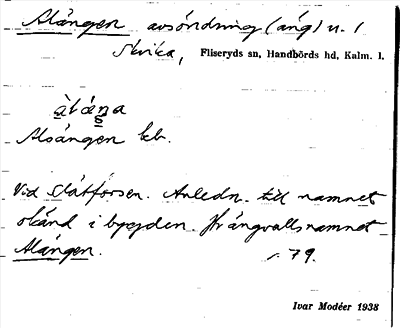 Alången avsöndring (äng) u. 1
Skvika, Fliseryds sn, Handbörds hd, Kalm. l.
Alsången kb.
Vid Slätforsen. Anledn. till namnet
okänd i bygden. Jfr ängvallsnamnet
Alången. s. 79.
Ivar Modéer 1938